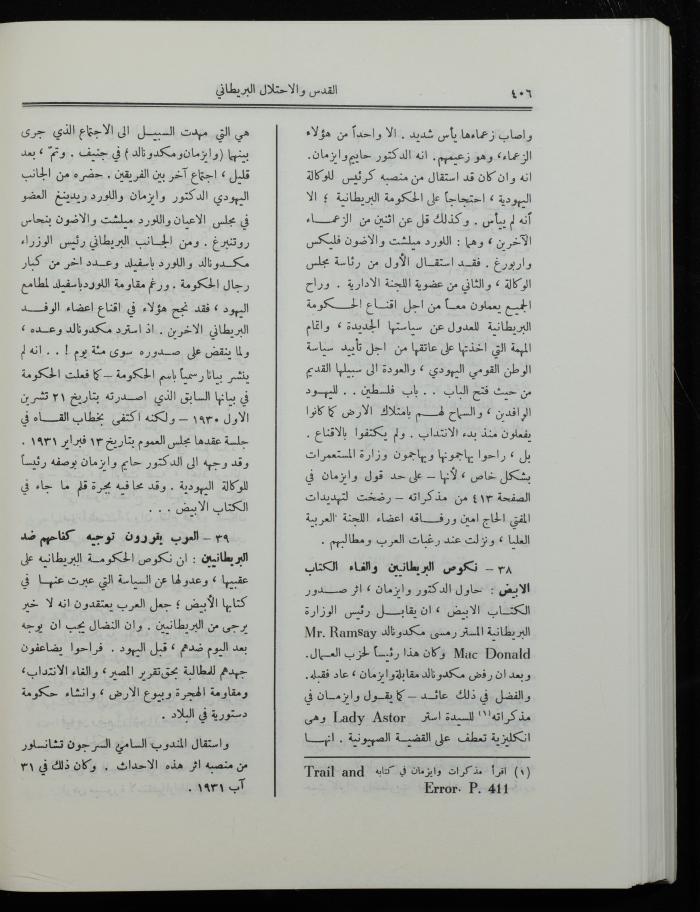 ٤٠٦
القدس والاحتلال البريطاني
واصاب زعماءها يأس شديد . الا واحداً من هؤلاء
الزعماء، وهو زعيمهم. انه الدكتور حاييم وايزمان.
انه وان كان قد استقال من منصبه كرئيس للوكالة
اليهودية ، احتجاجاً على الحكومة البريطانية ؛ الا
أنه لم ييأس . وكذلك قل عن اثنين من الزعماء
الآخرين ، وهما : اللورد ميلشت والاضون فليكس
واربورغ . فقد استقال الأول من رئاسة مجلس
الوكالة ، والثاني من عضوية اللجنة الادارية . وراح
الجميع يعملون معاً من اجل اقناع الحكومة
البريطانية للعدول عن سياستها الجديدة ، واتمام
المهمة التي اخذتها على عاتقها من اجل تأييد سياسة
الوطن القومي اليهودي ، والعودة الى سبيلها القديم
من حيث فتح الباب . . باب فلسطين . . لليهود
الوافدين ، والسماح لهم بامتلاك الارض كما كانوا
يفعلون منذ بدء الانتداب . ولم يكتفوا بالاقناع .
بل ، راحوا يهاجمونها ويهاجمون وزارة المستعمرات
بشكل خاص ، لأنها – على حد قول وايزمان في
الصفحة ٤١٣ من مذكراته – رضخت لتهديدات
المفتي الحاج امين ورفاقه اعضاء اللجنة العربية
العليا ، ونزلت عند رغبات العرب ومطالبهم .
٣٨ – نكوص البريطانيين والغاء الكتاب
الابيض : حاول الدكتور وايزمان ، اثر صدور
الكتاب الابيض ، ان يقابل رئيس الوزارة
البريطانية المستر رمسي مكدونالد Mr. Ramsay
Mac Donald وكان هذا رئيساً لحزب العمال.
وبعد ان رفض مكدونالد مقابلة وايزمان ، عاد فقبله.
والفضل في ذلك عائد – كما يقول وايزمان في
مذكراته(١) للسيدة استر Lady Astor وهى
انكليزية تعطف على القضية الصهيونية . انها
(١) اقرأ مذكرات وايزمان في كتابه Trail and
Error. P. 411
هي التي مهدت السبيل الى الاجتماع الذي جرى
بينها (وايزمان ومكدونالد) في جنيف . وتمّ ، بعد
قليل ، اجتماع آخر بين الفريقين . حضره من الجانب
اليهودي الدكتور وايزمان واللورد ريدينغ العضو
في مجلس الاعيان واللورد ميلشت والاضون بنحاس
روتنبرغ . ومن الجانب البريطاني رئيس الوزراء
مكدونالد واللورد باسفيلد وعدد اخر من كبار
رجال الحكومة . ورغم مقاومة اللورد باسفيلد لمطامع
اليهود ، فقد نجح هؤلاء في اقناع اعضاء الوفد
البريطاني الاخرين . اذ استرد مكدونالد وعده ،
ولما ينقض على صدوره سوى مئة يوم ! . . انه لم
ينشر بيانا رسمياً باسم الحكومة – كما فعلت الحكومة
في بيانها السابق الذي اصدرته بتاريخ ٢١ تشرين
الاول ١٩٣٠ – ولكنه اكتفى بخطاب القاه في
جلسة عقدها مجلس العموم بتاريخ ١٣ فبراير ١٩٣١ .
وقد وجهه الى الدكتور حايم وايزمان بوصفه رئيساً
للوكالة اليهودية . وقد محا فيه بجرة قلم ما جاء في
الكتاب الابيض . . .
٣٩ – العرب يقررون توجيه كفاحهم ضد
البريطانيين : ان نكوص الحكومة البريطانيه على
عقبيها ، وعدولها عن السياسة التي عبرت عنها في
كتابها الأبيض ؛ جعل العرب يعتقدون انه لا خير
يرجى من البريطانيين . وان النضال يجب ان يوجه
بعد اليوم ضدهم ، قبل اليهود . فراحوا يضاعفون
جهدهم للمطالبة بحق تقرير المصير ، والغاء الانتداب،
ومقاومة الهجرة وبيوع الارض ، وانشاء حكومة
دستورية في البلاد .
واستقال المندوب السامي السرجون تشانسلور
من منصبه اثر هذه الاحداث . وكان ذلك في ٣١
آب ١٩٣١ .